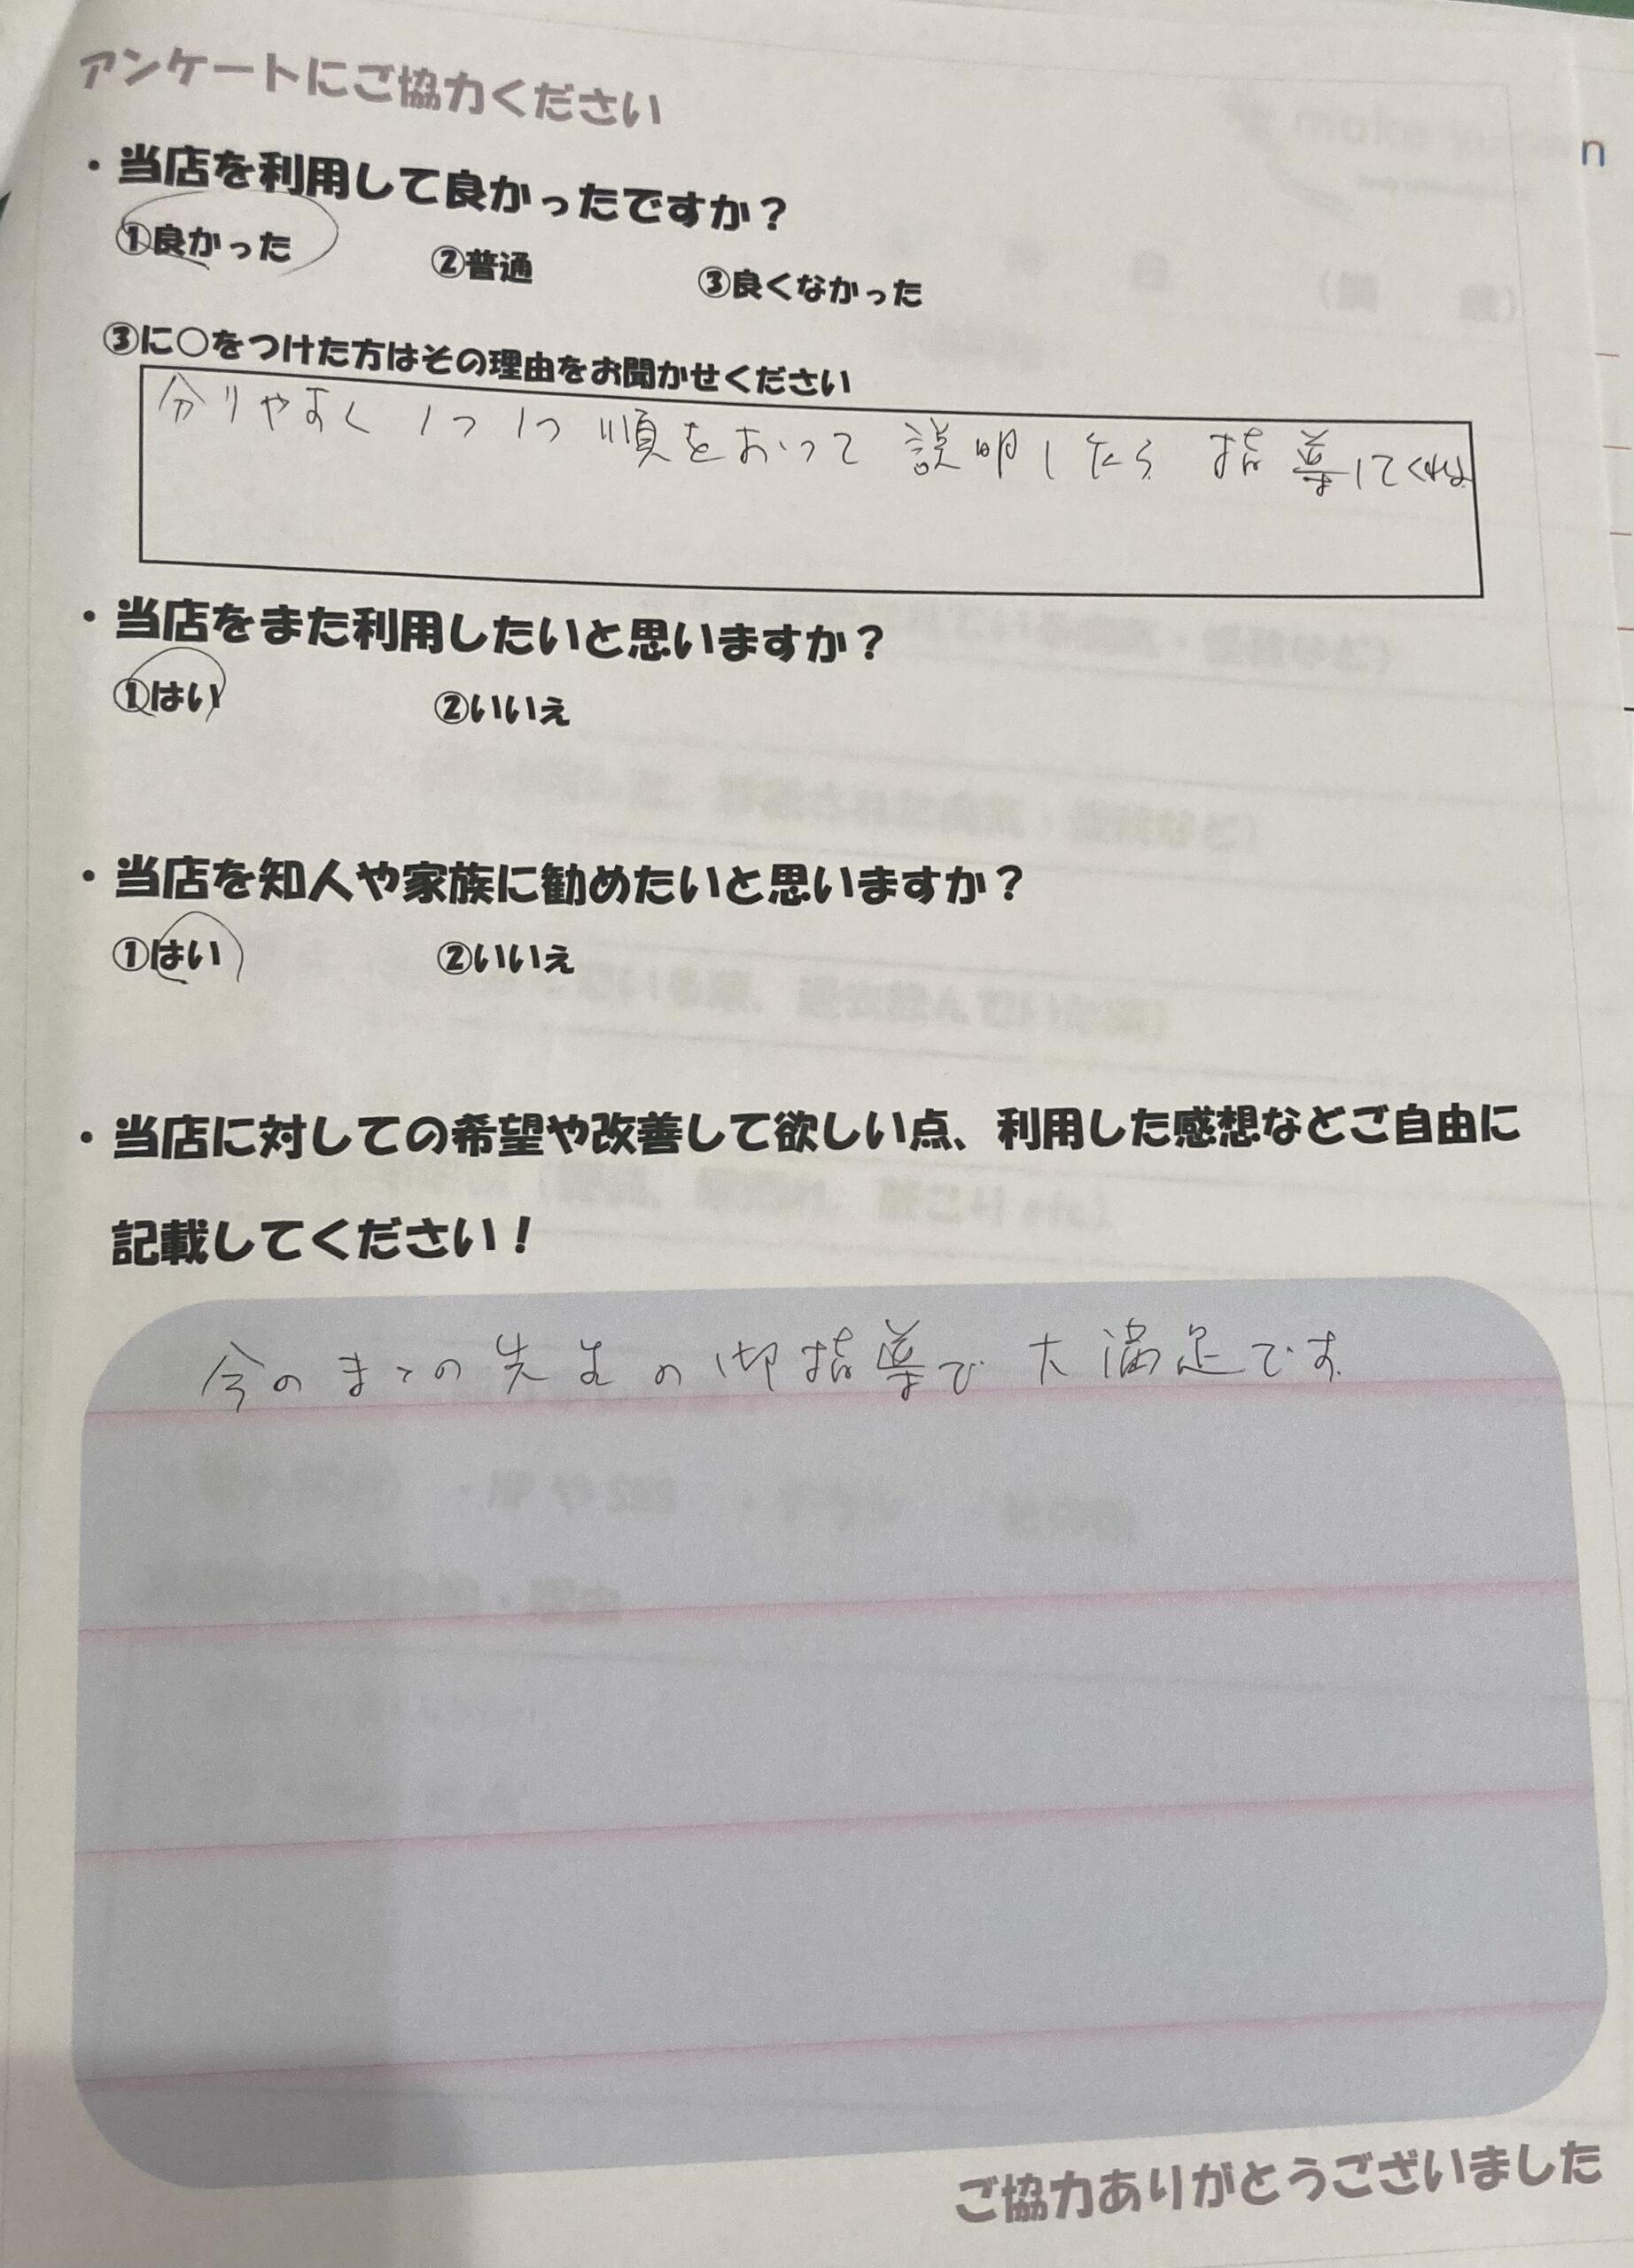 アンケートにご協力ください
・当店を利用して良かったですか？
①良かった ②普通 ③良くなかった
③に○をつけた方はその理由をお聞かせください
分りやすく1つ1つ順をおって説明したら指導してくれ
・当店をまた利用したいと思いますか？
①はい ②いいえ
・当店を知人や家族に勧めたいと思いますか？
①はい ②いいえ
・当店に対しての希望や改善して欲しい点、利用した感想などご自由に
記載してください！
今のまゝの先生の御指導で大満足です
ご協力ありがとうございました
n